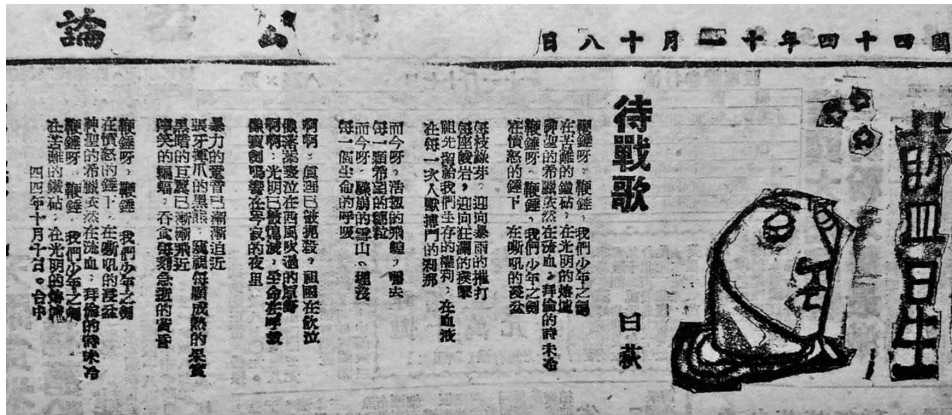 國四十四年十一月十八日
公論
藍星
待戰歌
白荻
鞭錘呀，鞭錘，我們少年之劍
在苦難的鐵砧，在光明的熔爐
神聖的希臘依然在流血，拜倫的詩未冷
鞭錘呀，鞭錘，我們少年之劍
在憤怒的錘下，在嘶吼的浸盆
每枝綠芽，迎向暴雨的摧打
每座峻岩，迎向狂瀾的撲擊
祖先留給我們生存的權利，在血液
在每一次人獸搏鬥的剎那
而今呀，浩翅的飛蝗，嚙去
每一顆希望的穗粒
而今呀，皚皚的雪山，埋沒
每一個生命的呼吸
啊啊，真理已被扼殺，祖國在飲泣
像落葉嗟泣在西風吹過的原野
啊啊，光明已被熄滅，生命在呼救
像寶劍鳴響在岑寂的夜里
暴力的電音已漸漸迫近
張牙舞爪的黑熊，窺視每顆成熟的果實
黑暗的巨翼已漸漸飛近
獰笑的蝙蝠，吞食每刻急逝的黃昏
鞭錘呀，鞭錘，我們少年之劍
在憤怒的錘下，在嘶吼的浸盆
神聖的希臘依然在流血，拜倫的詩未冷
鞭錘呀，鞭錘，我們少年之劍
在苦難的鐵砧，在光明的熔爐
四四年十月十日。台中